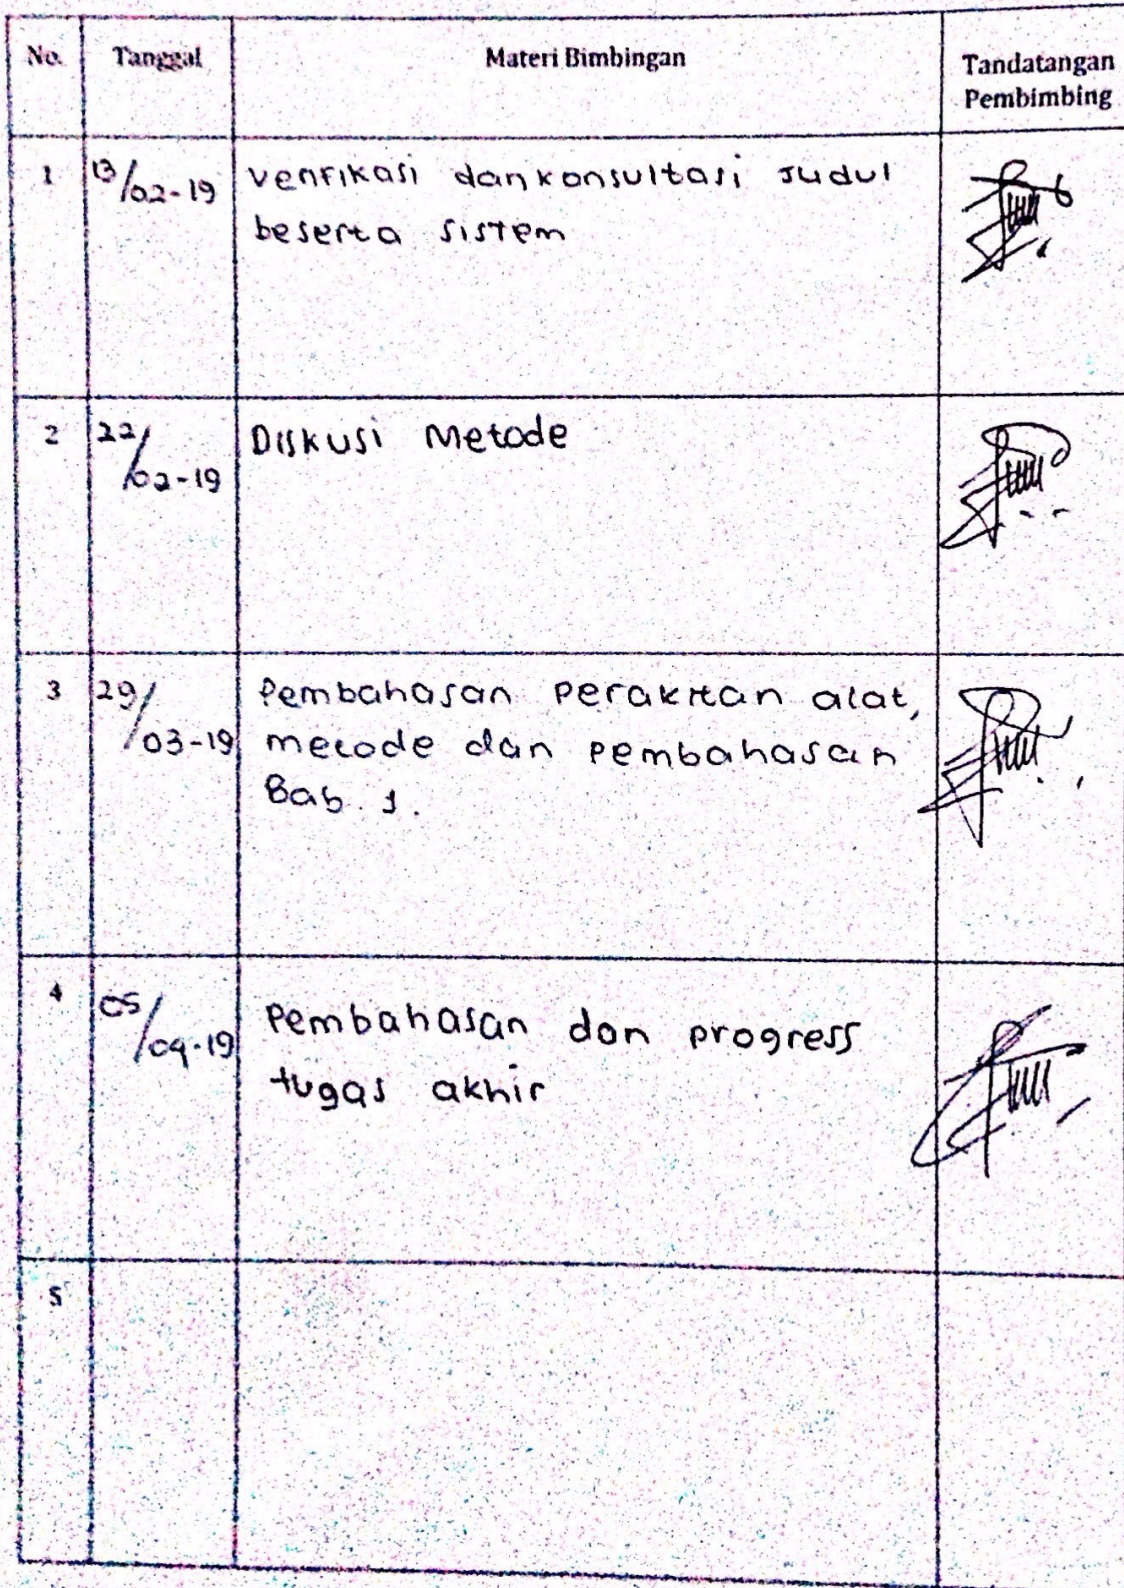 No. Tanggal Materi Bimbingan Tandatangan
Pembimbing
1 13/02-19 Verifikasi dan konsultasi Judul
beserta sistem
2 22/02-19 Diskusi Metode
3 29/03-19 Pembahasan perakitan alat,
metode dan pembahasan
Bab. 1.
4 05/04-19 Pembahasan dan progress
tugas akhir
5